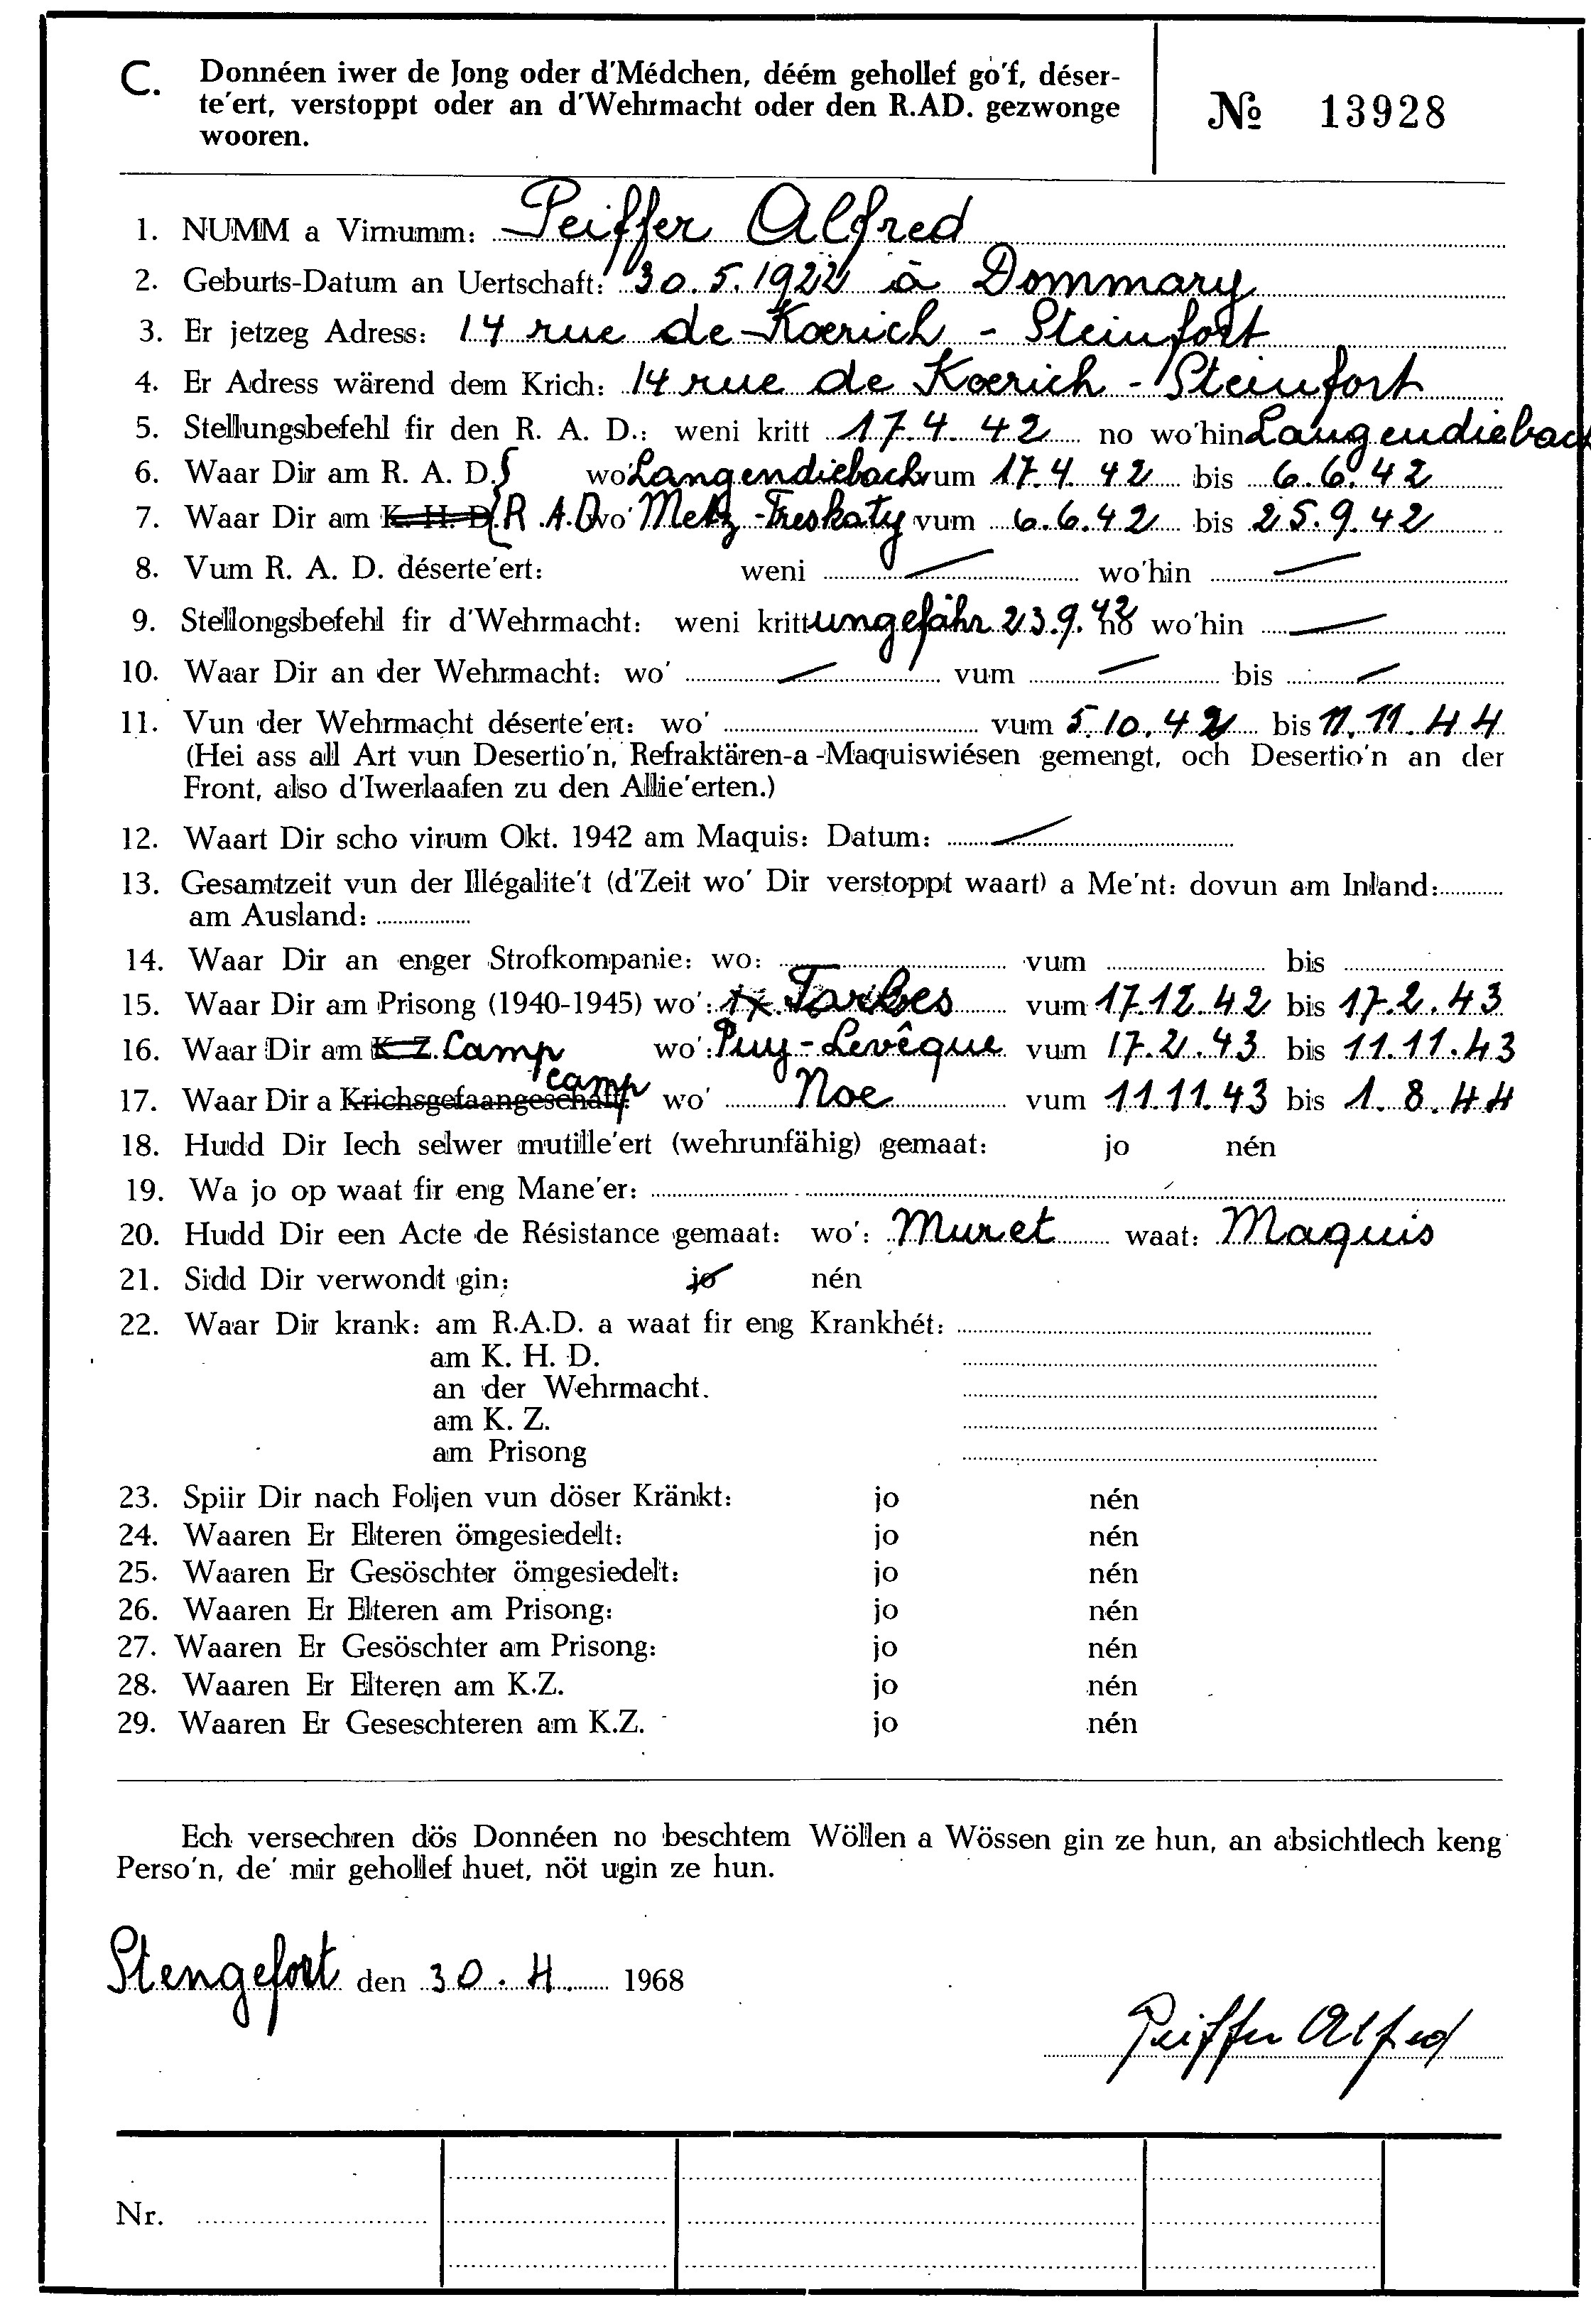 C. Donnéen iwer de Jong oder d'Médchen, déém gehollef go'f, déser-
te'ert, verstoppt oder an d'Wehrmacht oder den R.AD. gezwonge
wooren.
№ 13928
1. NUMM a Virnumm: Peiffer Alfred
2. Geburts-Datum an Uertschaft: 30.5.1922 à Dommary
3. Er jetzeg Adress: 14 rue de Koerich - Steinfort
4. Er Adress wärend dem Krich: 14 rue de Koerich - Steinfort
5. Stellungsbefehl fir den R. A. D.: weni kritt 17.4.42 no wo'hin Langendiebach
6. Waar Dir am R. A. D. wo' Langendiebach vum 17.4.42 bis 6.6.42
7. Waar Dir am K. H. D. R.A.D wo' Metz-Freskaty vum 6.6.42 bis 25.9.42
8. Vum R. A. D. déserte'ert: weni — wo'hin —
9. Stellongsbefehl fir d'Wehrmacht: weni kritt ungefähr 23.9.42 no wo'hin —
10. Waar Dir an der Wehrmacht: wo' — vum — bis —
11. Vun der Wehrmacht déserte'ert: wo' vum 5.10.42 bis 11.11.44
(Hei ass all Art vun Desertio'n, Refraktären-a-Maquiswiésen gemengt, och Desertio'n an der
Front, also d'Iwerlaafen zu den Allie'erten.)
12. Waart Dir scho virum Okt. 1942 am Maquis: Datum: —
13. Gesamtzeit vun der Illégalite't (d'Zeit wo' Dir verstoppt waart) a Me'nt: dovun am Inland:
am Ausland:
14. Waar Dir an enger Strofkompanie: wo: — vum bis
15. Waar Dir am Prisong (1940-1945) wo': Tarbes vum 17.12.42 bis 17.2.43
16. Waar Dir am K Z. Camp wo': Puy-Levêque vum 17.2.43 bis 11.11.43
17. Waar Dir a Krichsgefaangeschaft: camp wo' Noe vum 11.11.43 bis 1.8.44
18. Hudd Dir Iech selwer mutille'ert (wehrunfähig) gemaat: jo nén
19. Wa jo op waat fir eng Mane'er:
20. Hudd Dir een Acte de Résistance gemaat: wo': Muret waat: Maquis
21. Sidd Dir verwondt gin: jo nén
22. Waar Dir krank: am R.A.D. a waat fir eng Krankhét:
am K. H. D.
an der Wehrmacht.
am K. Z.
am Prisong
23. Spiir Dir nach Foljen vun döser Kränkt: jo nén
24. Waaren Er Elteren ömgesiedelt: jo nén
25. Waaren Er Gesöschter ömgesiedelt: jo nén
26. Waaren Er Elteren am Prisong: jo nén
27. Waaren Er Gesöschter am Prisong: jo nén
28. Waaren Er Elteren am K.Z. jo nén
29. Waaren Er Geseschteren am K.Z. jo nén
Ech versechren dös Donnéen no beschtem Wöllen a Wössen gin ze hun, an absichtlech keng
Perso'n, de' mir gehollef huet, nöt ugin ze hun.
Stengefort den 30.4. 1968
Peiffer Alfred
Nr.